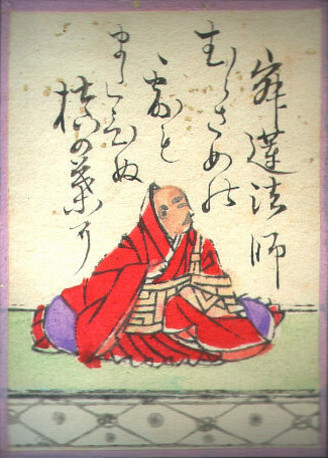 寂蓮法師
むらさめの
露も
またひぬ
槙の葉に